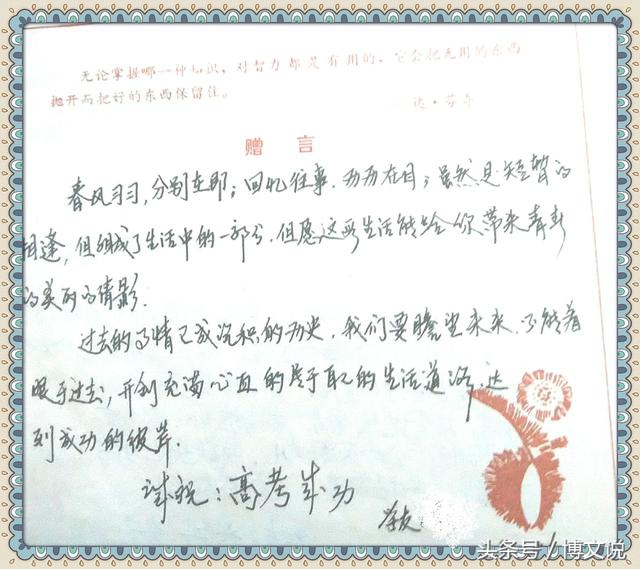 无论掌握哪一种知识，对智力都是有用的，它会把无用的东西
抛开而把好的东西保留住。
——达·芬奇
赠言
春风习习，分别在即；回忆往事，历历在目；虽然是短暂的
相逢，但组成了生活中的一部分，但愿这所生活能给你带来青春
的美丽的倩影.
过去的事情已成沉积的历史，我们要瞻望未来，不能着
眼于过去，开创充满心血的属于自己的生活道路，达
到成功的彼岸.
谨祝：高考成功
学友
头条号/博文说